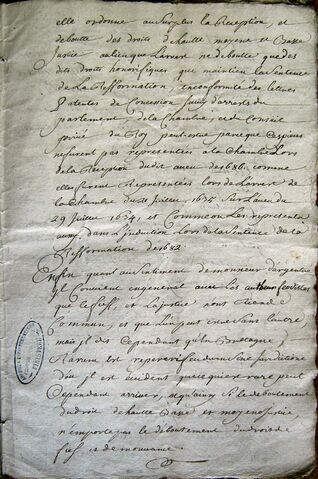 elle ordonne au Surplus la Reception, et
deboutte des droits de haulte moyene et Basse
Justice au lieu que L'arrest ne deboutte que des
dits droits honorifiques que maintien la Sentence
de La Refformation, inconformité des lettres
Patentes de Concession Suivy d'arrests du
parlement, de la Chambre, et du Conseil
privé du Roy peut estre parce que Ces pieces
ne furent pas representées a la Chambre Lors
de la Reception dudit aveu de 1686. comme
elles furent Representées lors de L'arrest de
la Chambre du Juillet 1635 Sur L'aveu du
29 Juillet 1634, et Comme on Les representa
aussy dans L'induction Lors de la Sentence de la
Refformation de 1682
Enfin quant au Sentiment de monsieur d'argentré
il Convient en general avec les autheurs
que le fief, et la justice n'ont Rien de
Commun, et que L'un peut estre Sans L'autre,
mais il dit Cependant qu'en Bretagne,
Rarum est reperiri feudum sine jurisditione
D'ou il est evident que ce qui est rare peut
Cependant arriver, et qu'ainsy Si le deboutement
du droit de haulte Basse et moyene justice,
n'emporte pas le deboutement du droit de
fief et de mouvance.